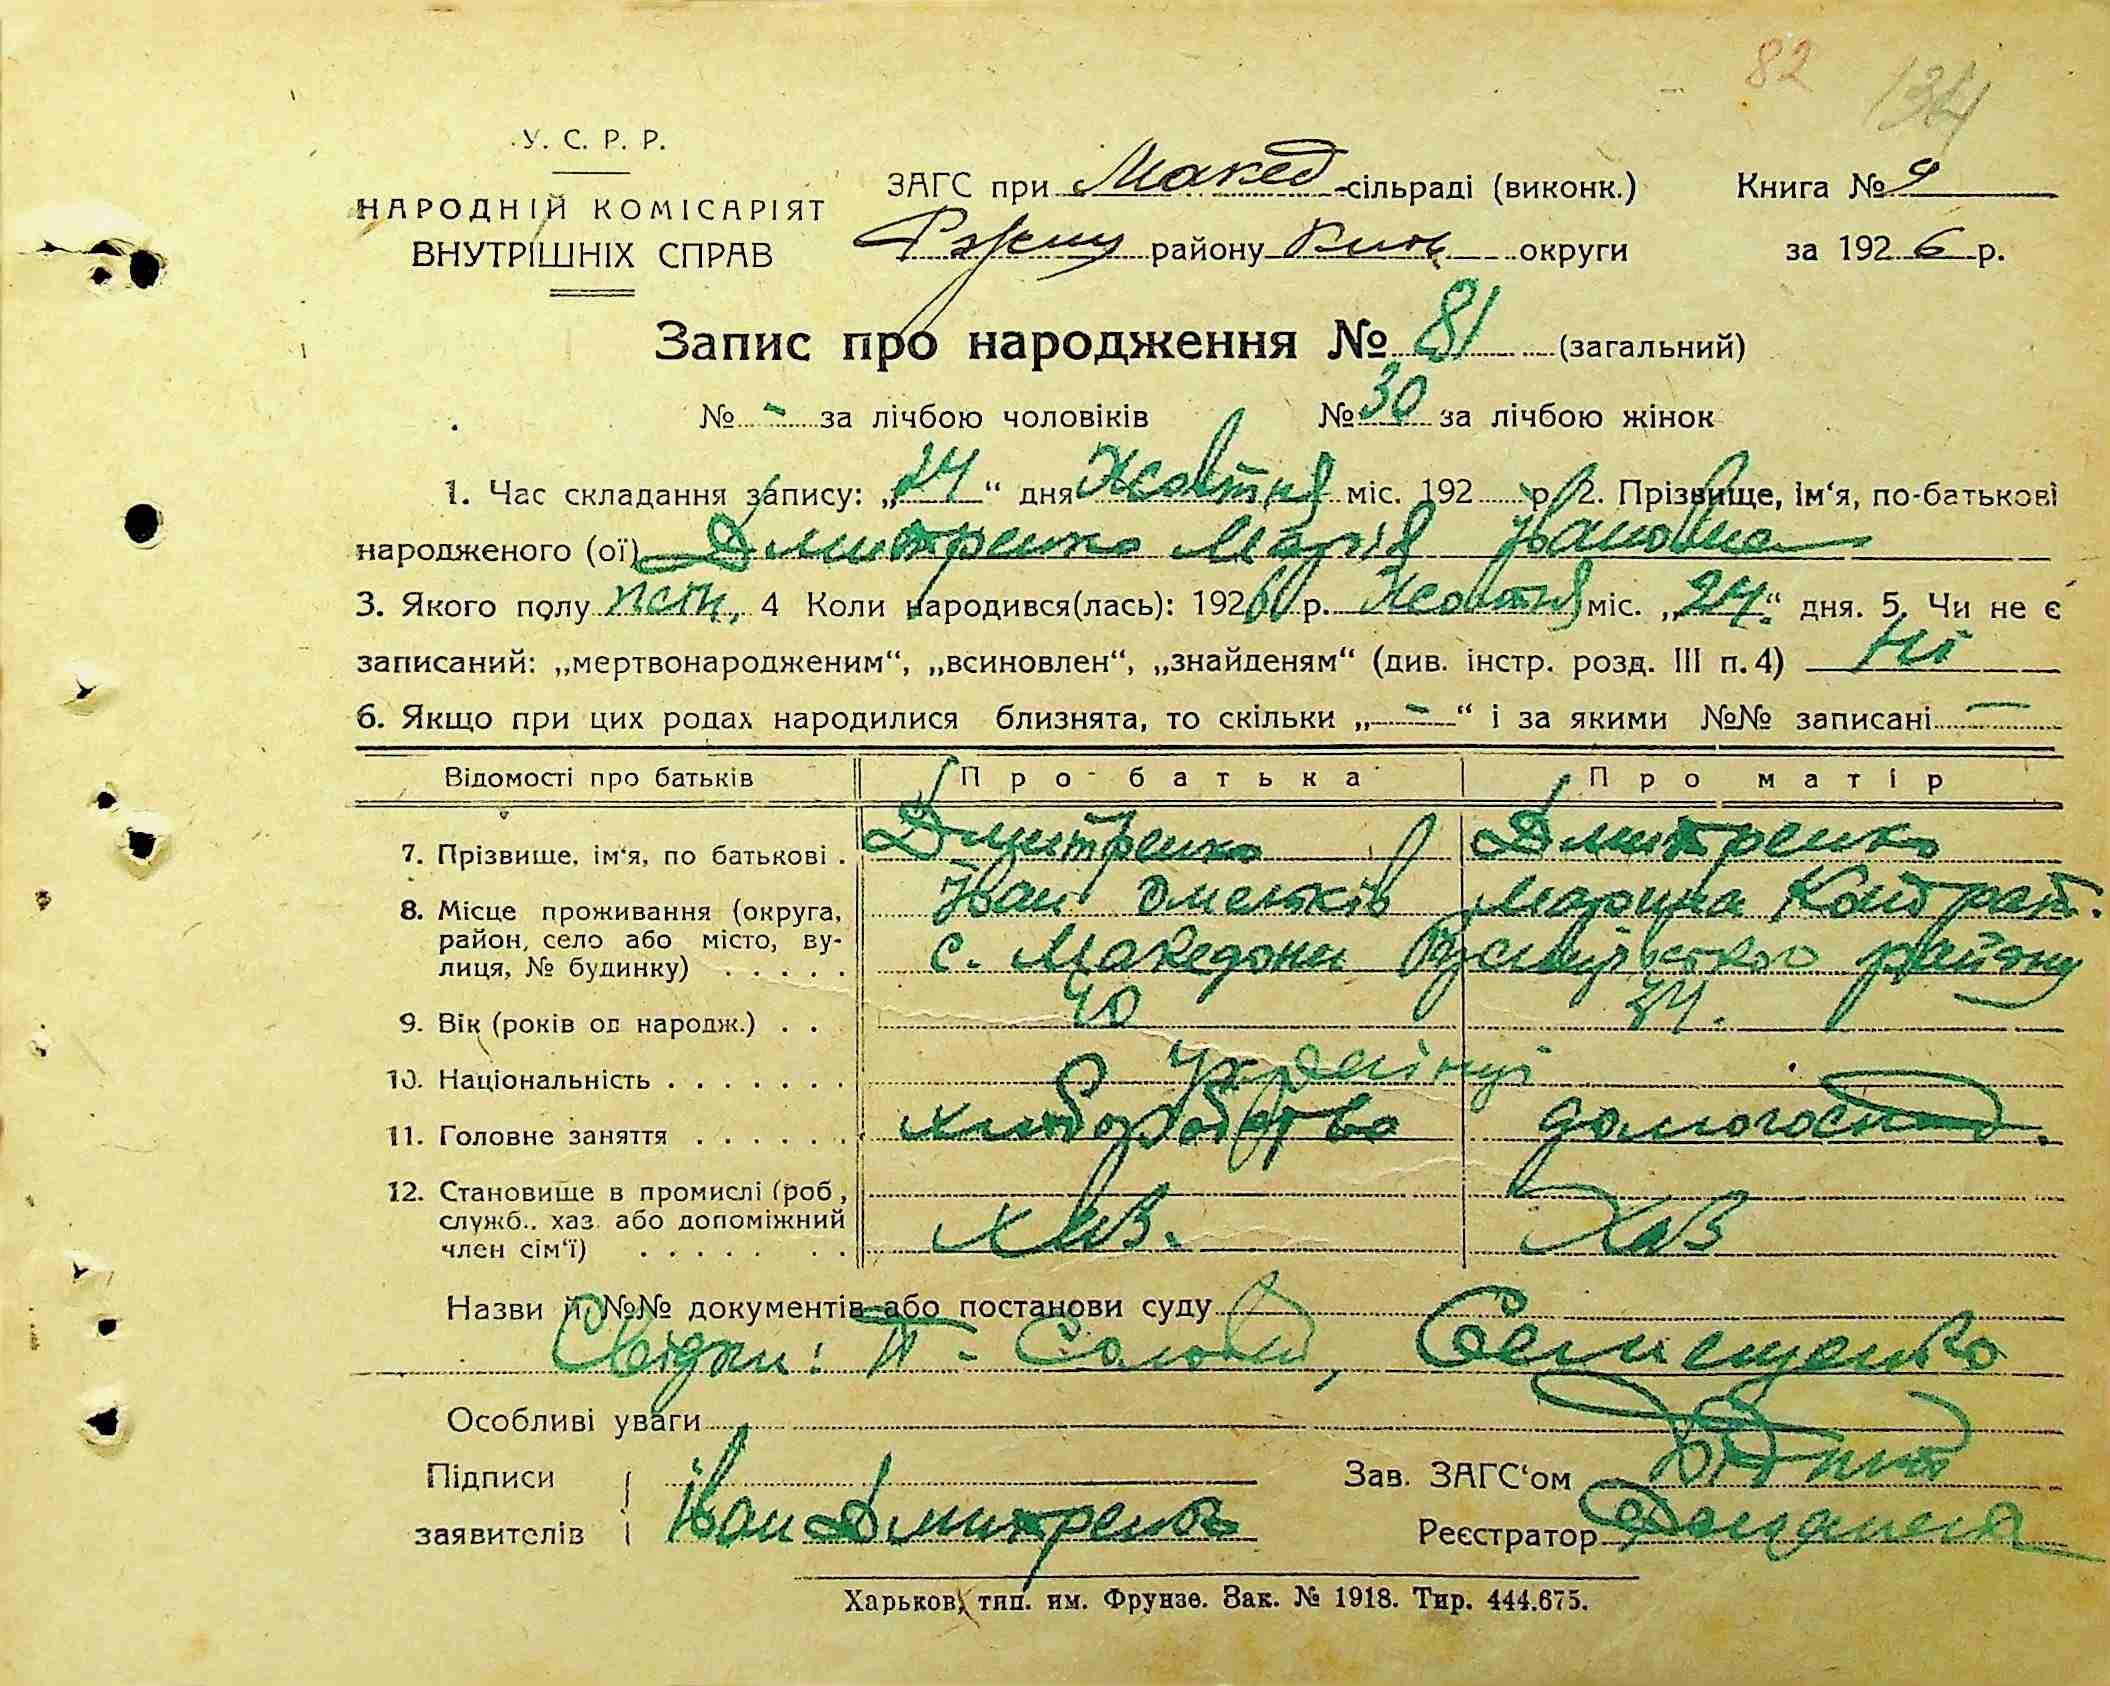 82 134
У. С. Р. Р.
НАРОДНІЙ КОМІСАРІЯТ
ВНУТРІШНІХ СПРАВ
ЗАГС при Македсільраді (виконк.) Книга № 9
Ржищ району Київ округи за 1926 р.
Запис про народження № 81 (загальний)
№ - за лічбою чоловіків № 30 за лічбою жінок
1. Час складання запису: „24“ дня Жовтня міс. 192 р. 2. Прізвище, Ім‘я, по-батькові
народженого (ої) Дмитренко Марія Івановна
3. Якого полу жін. 4 Коли народився(лась): 1926 р. Жовтня міс. „24.“ дня. 5. Чи не є
записаний: „мертвонародженим“, „всиновлен“, „знайденям“ (див. інстр. розд. III п. 4) Ні
6. Якщо при цих родах народилися близнята, то скільки „-“ і за якими №№ записані —
Відомості про батьків Про батька Про матір
7. Прізвище, ім‘я, по батькові . Дмитренко Дмитренко
Іван Омельків Марина Кондрат.
8. Місце проживання (округа,
район, село або місто, ву-
лиця, № будинку) . . . . . с. Македони району
9. Вік (років од народж.) . . 40 34.
10. Національність . . . . . . . Українці
11. Головне заняття . . . . . . . хліборобство домогосп.
12. Становище в промислі (роб,
служб., хаз. або допоміжний
член сім‘ї) . . . . . . . Хаз
Назви й №№ документів або постанови суду
Свідки: Т. Соловей, Семещенко
Особливі уваги
Підписи Зав. ЗАГС‘ом
заявителів Іван Дмитренко Реєстратор
Харьков, тип. им. Фрунзе. Зак. № 1918. Тир. 444.675.